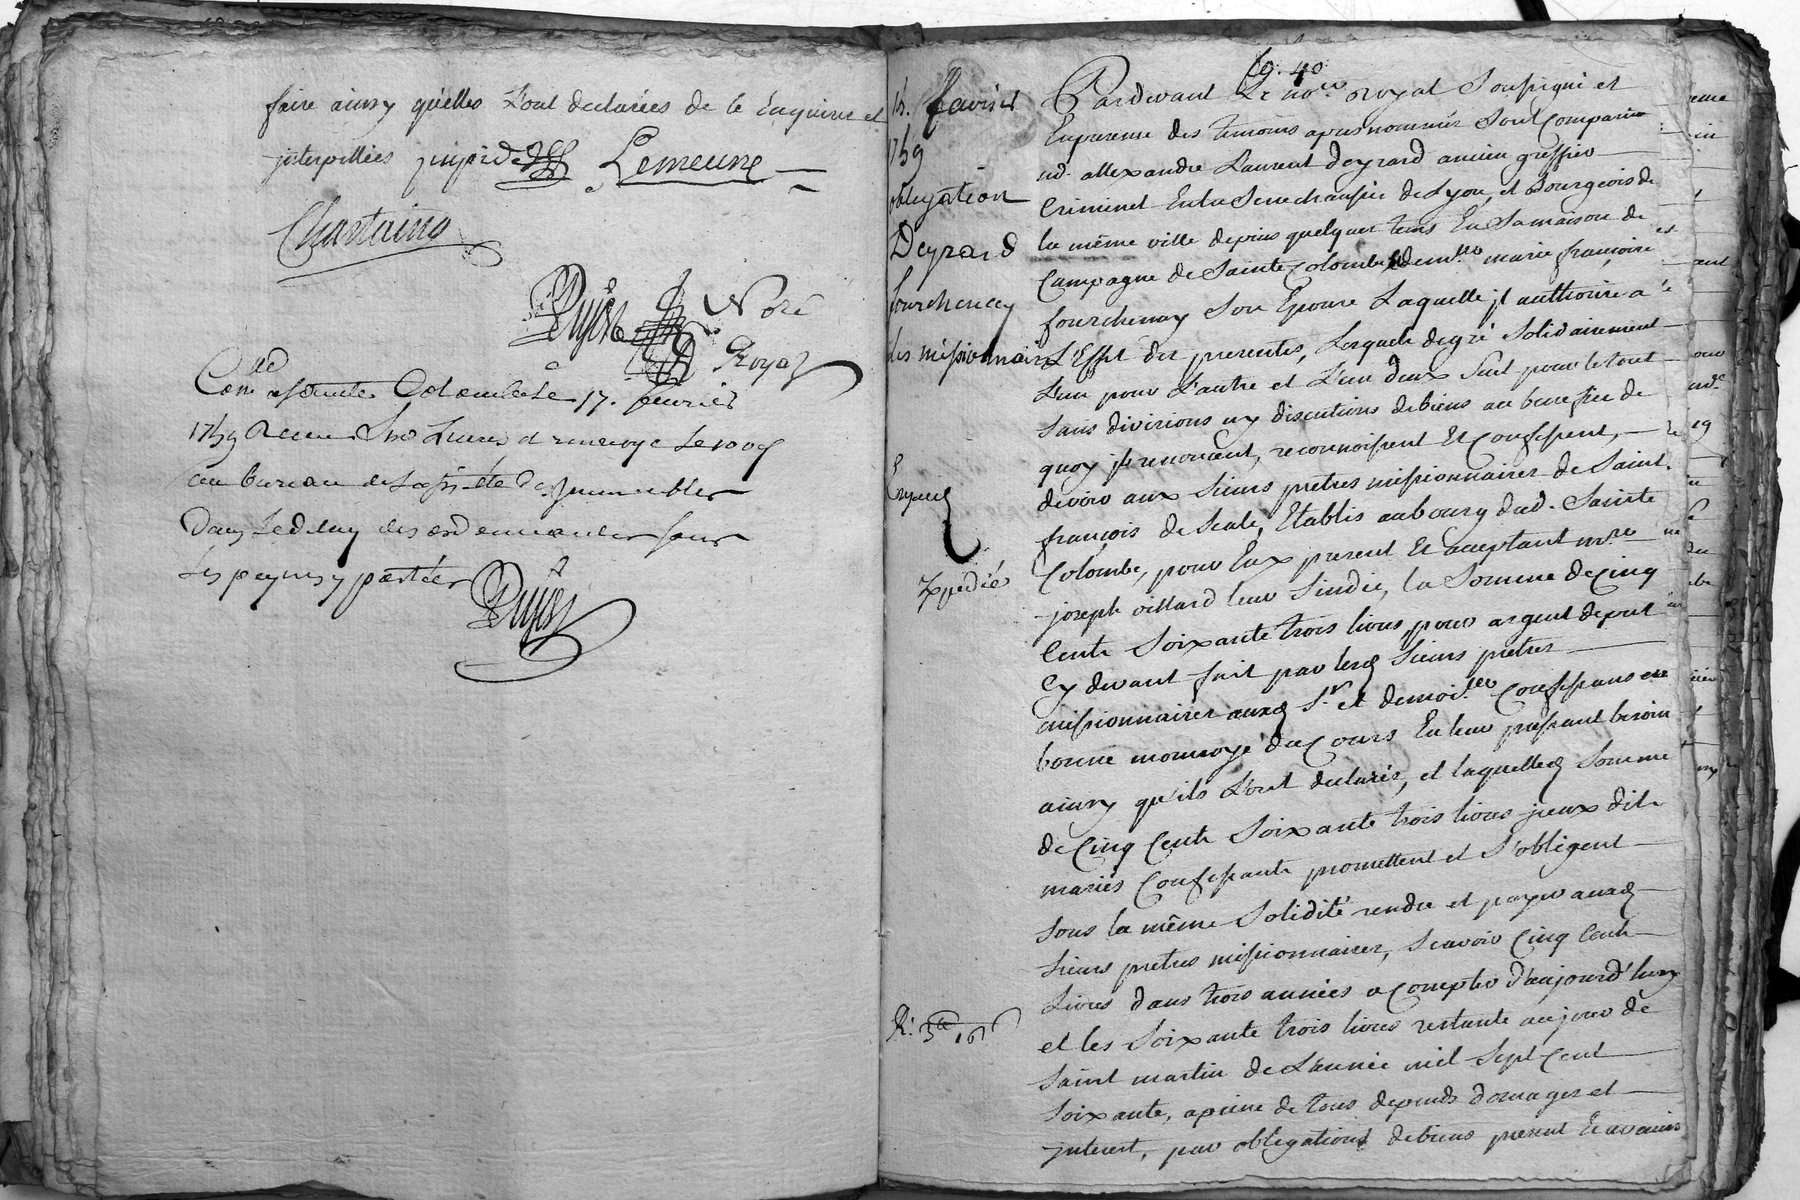 faire ainsy qu'elles L'ont declarées de ce Enquises et
interpellées
Lemeune
Chastaing
Pujos Nore
Royal
Con.lé a Sainte Colombe Le 17. fevrier
1759 Receu Livres et renvoyé
au bureau
Dans Le delay des ordonnances sous
Les peynes y portées
Pujos
fo. 40
15. favrier
1759
obligation
Deyrard
fourchenay
Les missionnaires
Expedié
R. 3ll 16s
Pardevant Le no.re royal Soussigné et
En presense des temoins apres nommés Sont Comparus
sr. allexandre Laurent deyrard ancien greffier
Criminel En La Senechaussée de Lyon, et Bourgeois de
la même ville depuis quelques tems En Sa maison de
Campagne de Sainte Colombe, et dem.lle marie françoise
fourchenay Son Epouse Laquelle jl authorise a
L'Effet des presentes, Lesquels de gré Solidairement
L'un pour L'autre et L'un deux Seul pour le tout
Sans divisions ny discutions de biens au benefice de
quoy jls renoncent, reconnoissent Et Confessent,
devoir aux Sieurs prêtres missionnaires de Saint
françois de Sales, Etablis au bourg dud. Sainte
Colombe, pour Eux present Et acceptant m.re
joseph villard leur Sindic, la Somme de Cinq
Cents Soixante trois livres pour argent de prêt
Cy devant fait par lesd Sieurs prêtres
missionnaires auxd Sr. et demois.lle Confessans en
bonne monnoye du Cours En leur pressant besoin
ainsy qu'ils L'ont declarés, et laquelle Somme
de Cinq Cents Soixante trois livres jceux dits
mariés Confessants promettent et S'obligent
Sous la même Solidité rendre et payer auxd
Sieurs prêtres missionnaires, Scavoir Cinq Cents
Livres dans trois années a Compter d'aujourd'huy
et les Soixante trois livres restants au jour de
Saint martin de L'année mil Sept Cent
Soixante, a peine de tous depends domages et
jnterest, par obligations de biens present Et avenirs